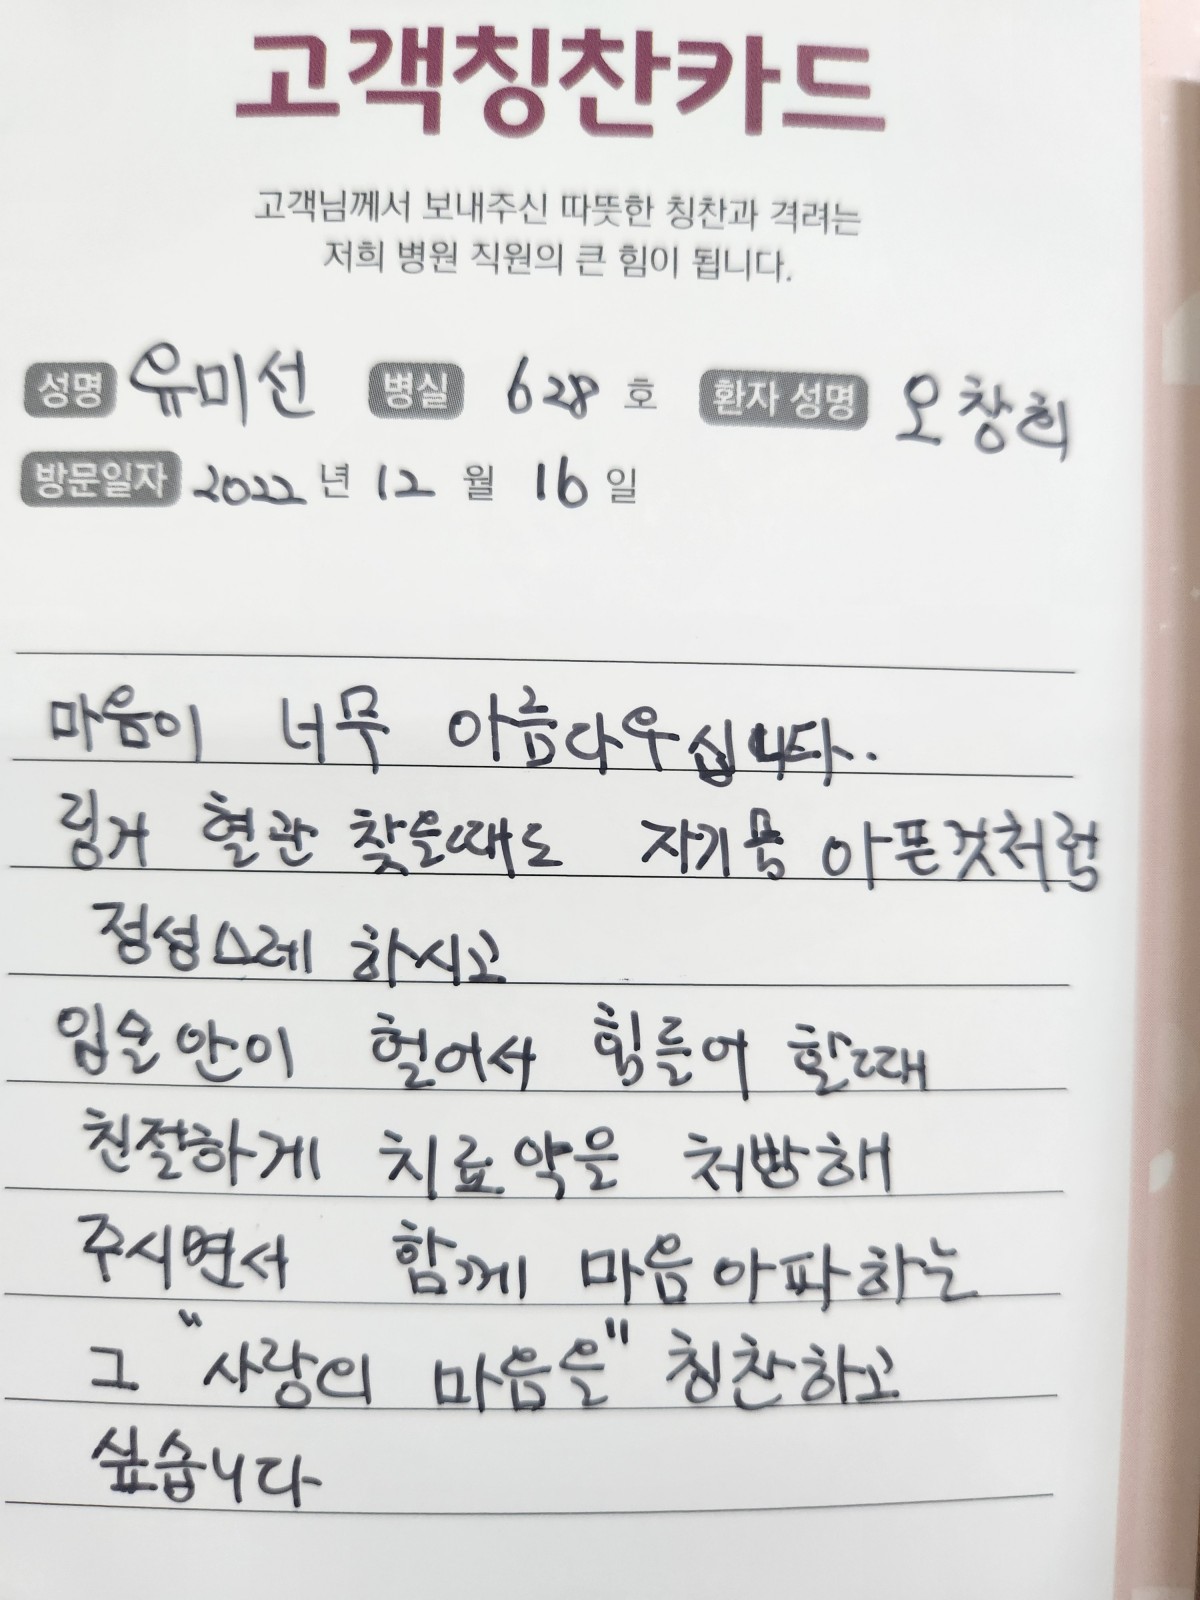 고객칭찬카드
고객님께서 보내주신 따뜻한 칭찬과 격려는
저희 병원 직원의 큰 힘이 됩니다.
성명 유미선 병실 628 호 환자 성명 오창희
방문일자 2022 년 12 월 16 일
마음이 너무 아름다우십니다..
링거 혈관 찾을때도 자기몸 아픈것처럼
정성스레 하시고
입몸안이 헐어서 힘들어 할때
친절하게 치료약을 처방해
주시면서 함께 마음아파하는
그 "사랑의 마음을" 칭찬하고
싶습니다